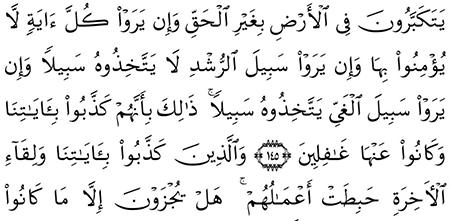 يَتَكَبَّرُونَ فِي الْأَرْضِ بِغَيْرِ الْحَقِّ وَإِن يَرَوْا۟ كُلَّ ءَايَةٍ لَّا
يُؤْمِنُوا۟ بِهَا وَإِن يَرَوْا۟ سَبِيلَ الرُّشْدِ لَا يَتَّخِذُوهُ سَبِيلًا وَإِن
يَرَوْا۟ سَبِيلَ الْغَيِّ يَتَّخِذُوهُ سَبِيلًا ۚ ذَٰلِكَ بِأَنَّهُمْ كَذَّبُوا۟ بِـَٔايَـٰتِنَا
وَكَانُوا۟ عَنْهَا غَـٰفِلِينَ ﴿١٤٥﴾ وَالَّذِينَ كَذَّبُوا۟ بِـَٔايَـٰتِنَا وَلِقَآءِ
الْـَٔاخِرَةِ حَبِطَتْ أَعْمَـٰلُهُمْ ۚ هَلْ يُجْزَوْنَ إِلَّا مَا كَانُوا۟